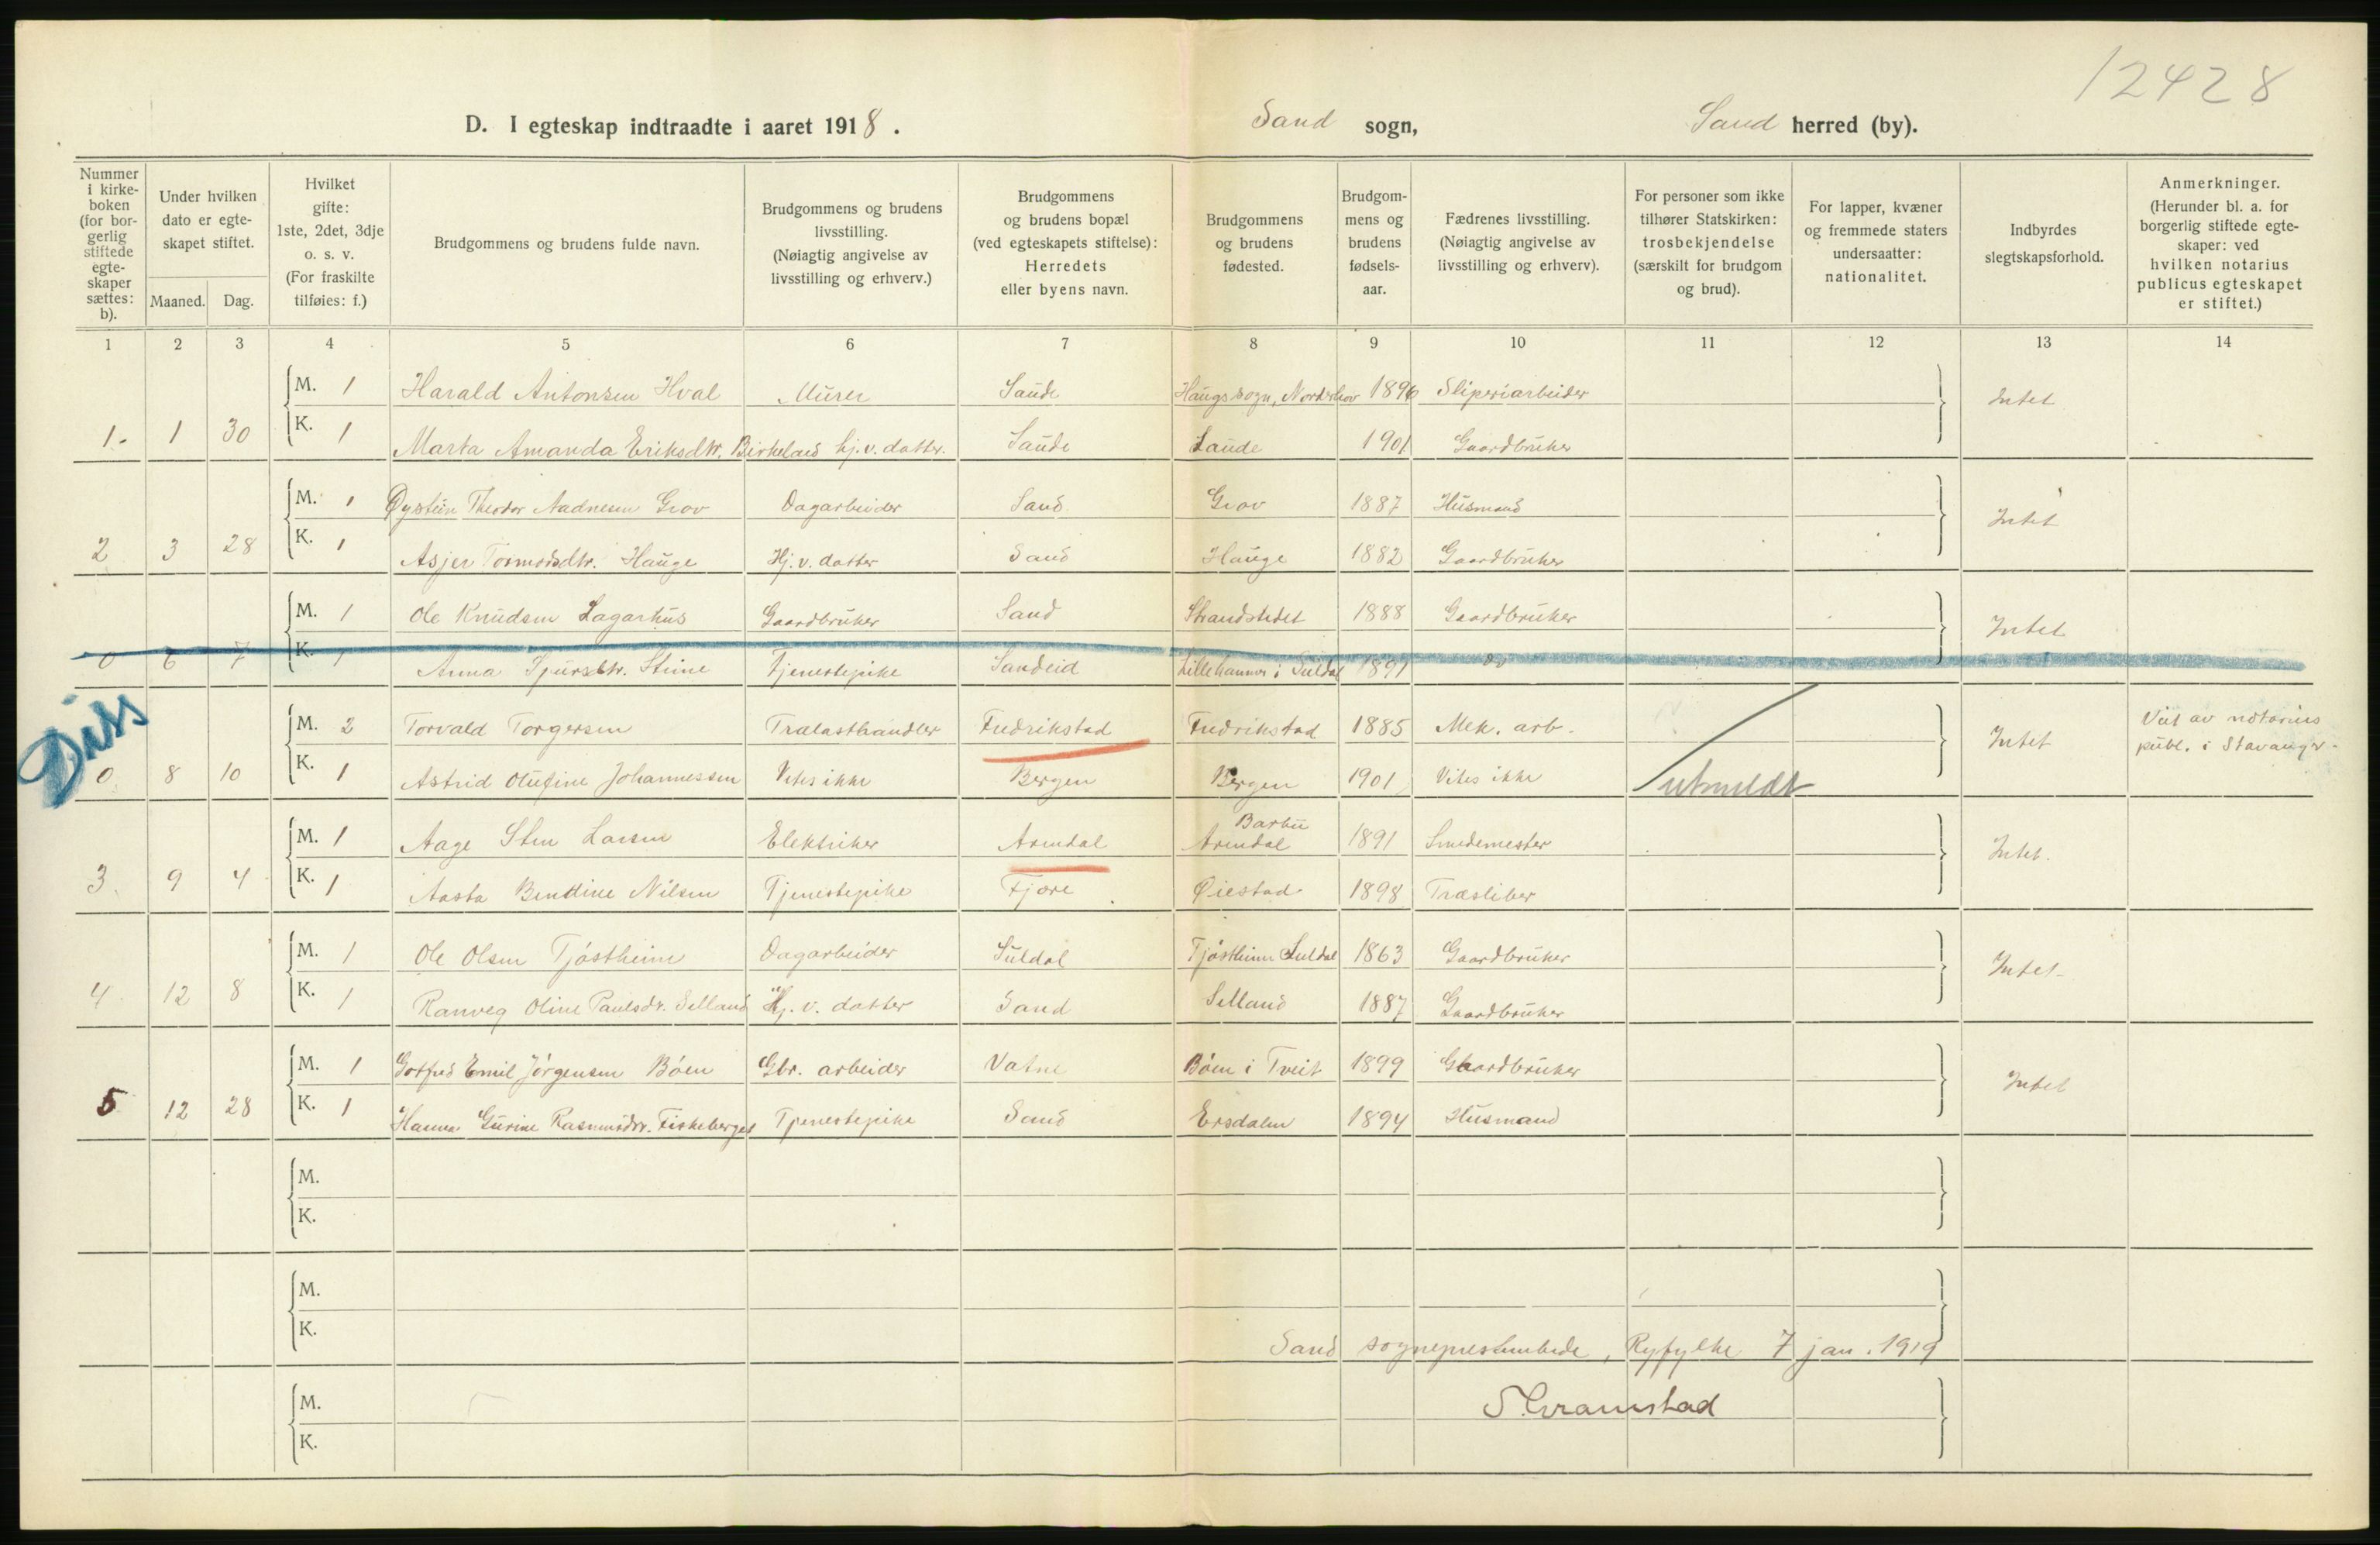 12428
D. I egteskap indtraadte i aaret 1918. Sand sogn, Sand herred (by).
Nummer i kirkeboken (for borgerlig stiftede egteskaper sættes: b).
Under hvilken dato er egteskapet stiftet.
Maaned. Dag.
Hvilket gifte: 1ste, 2det, 3dje o. s. v. (For fraskilte tilføies: f.)
Brudgommens og brudens fulde navn.
Brudgommens og brudens livsstilling. (Nøiagtig angivelse av livsstilling og erhverv.)
Brudgommens og brudens bopæl (ved egteskapets stiftelse): Herredets eller byens navn.
Brudgommens og brudens fødested.
Brudgommens og brudens fødselsaar.
Fædrenes livsstilling. (Nøiagtig angivelse av livsstilling og erhverv).
For personer som ikke tilhører Statskirken: trosbekjendelse (særskilt for brudgom og brud).
For lapper, kvæner og fremmede staters undersaatter: nationalitet.
Indbyrdes slegtskapsforhold.
Anmerkninger. (Herunder bl. a. for borgerlig stiftede egteskaper: ved hvilken notarius publicus egteskapet er stiftet.)
1 2 3 4 5 6 7 8 9 10 11 12 13 14
M. 1 Harald Antonsen Hval Murer Saude Haugs sogn, Norderhov 1896 Sliperiarbeider Intet
1. 1 30 K. 1 Marta Amanda Eriksdtr. Birkeland hj. v. datter. Saude Saude 1901 Gaardbruker
M. 1 Øystein Theodor Aadnesen Grov Dagarbeider Sand Grov 1887 Husmand Intet
2 3 28 K. 1 Asjer Tormodsdtr. Hauge Hj. v. datter Sand Hauge 1882 Gaardbruker
M. 1 Ole Knudsen Lagarhus Gaardbruker Sand Strandstedet 1888 Gaardbruker Intet
0 6 7 K. 1 Anna Sjursdtr. Stene Tjenestepike Sandeid Lillehammer i Suldal 1891 do
Diss
M. 2 Torvald Torgersen Trælasthandler Fredrikstad Fredrikstad 1885 Mek. arb. Intet Viet av notarius publ. i Stavanger.
0 8 10 K. 1 Astrid Olufine Johannessen Vites ikke Bergen Bergen 1901 Vites ikke utmeldt
M. 1 Aage Sten Larsen Elektriker Arendal Barbu Arendal 1891 Smedemester Intet.
3. 9 4 K. 1 Aasta Bentine Nilsen Tjenestepike Fjære Øiestad 1898 Træsliber
M. 1 Ole Olsen Tjøstheim Dagarbeider Suldal Tjøstheim Suldal 1863 Gaardbruker Intet.
4. 12 8 K. 1 Ranveg Oline Paulsdr. Selland Hj. v. datter Sand Selland 1887 Gaardbruker
M. 1 Gotfred Emil Jørgensen Bøen Gbr. arbeider Vatne Bøen i Tveit 1899 Gaardbruker Intet
5 12 28 K. 1 Hanna Gurine Rasmusdtr. Fiskeberget Tjenestepike Sand Ersdalen 1894 Husmand
M.
K.
M.
K.
Sand sogneprestembede, Ryfylke 7 jan. 1919
M.
K.